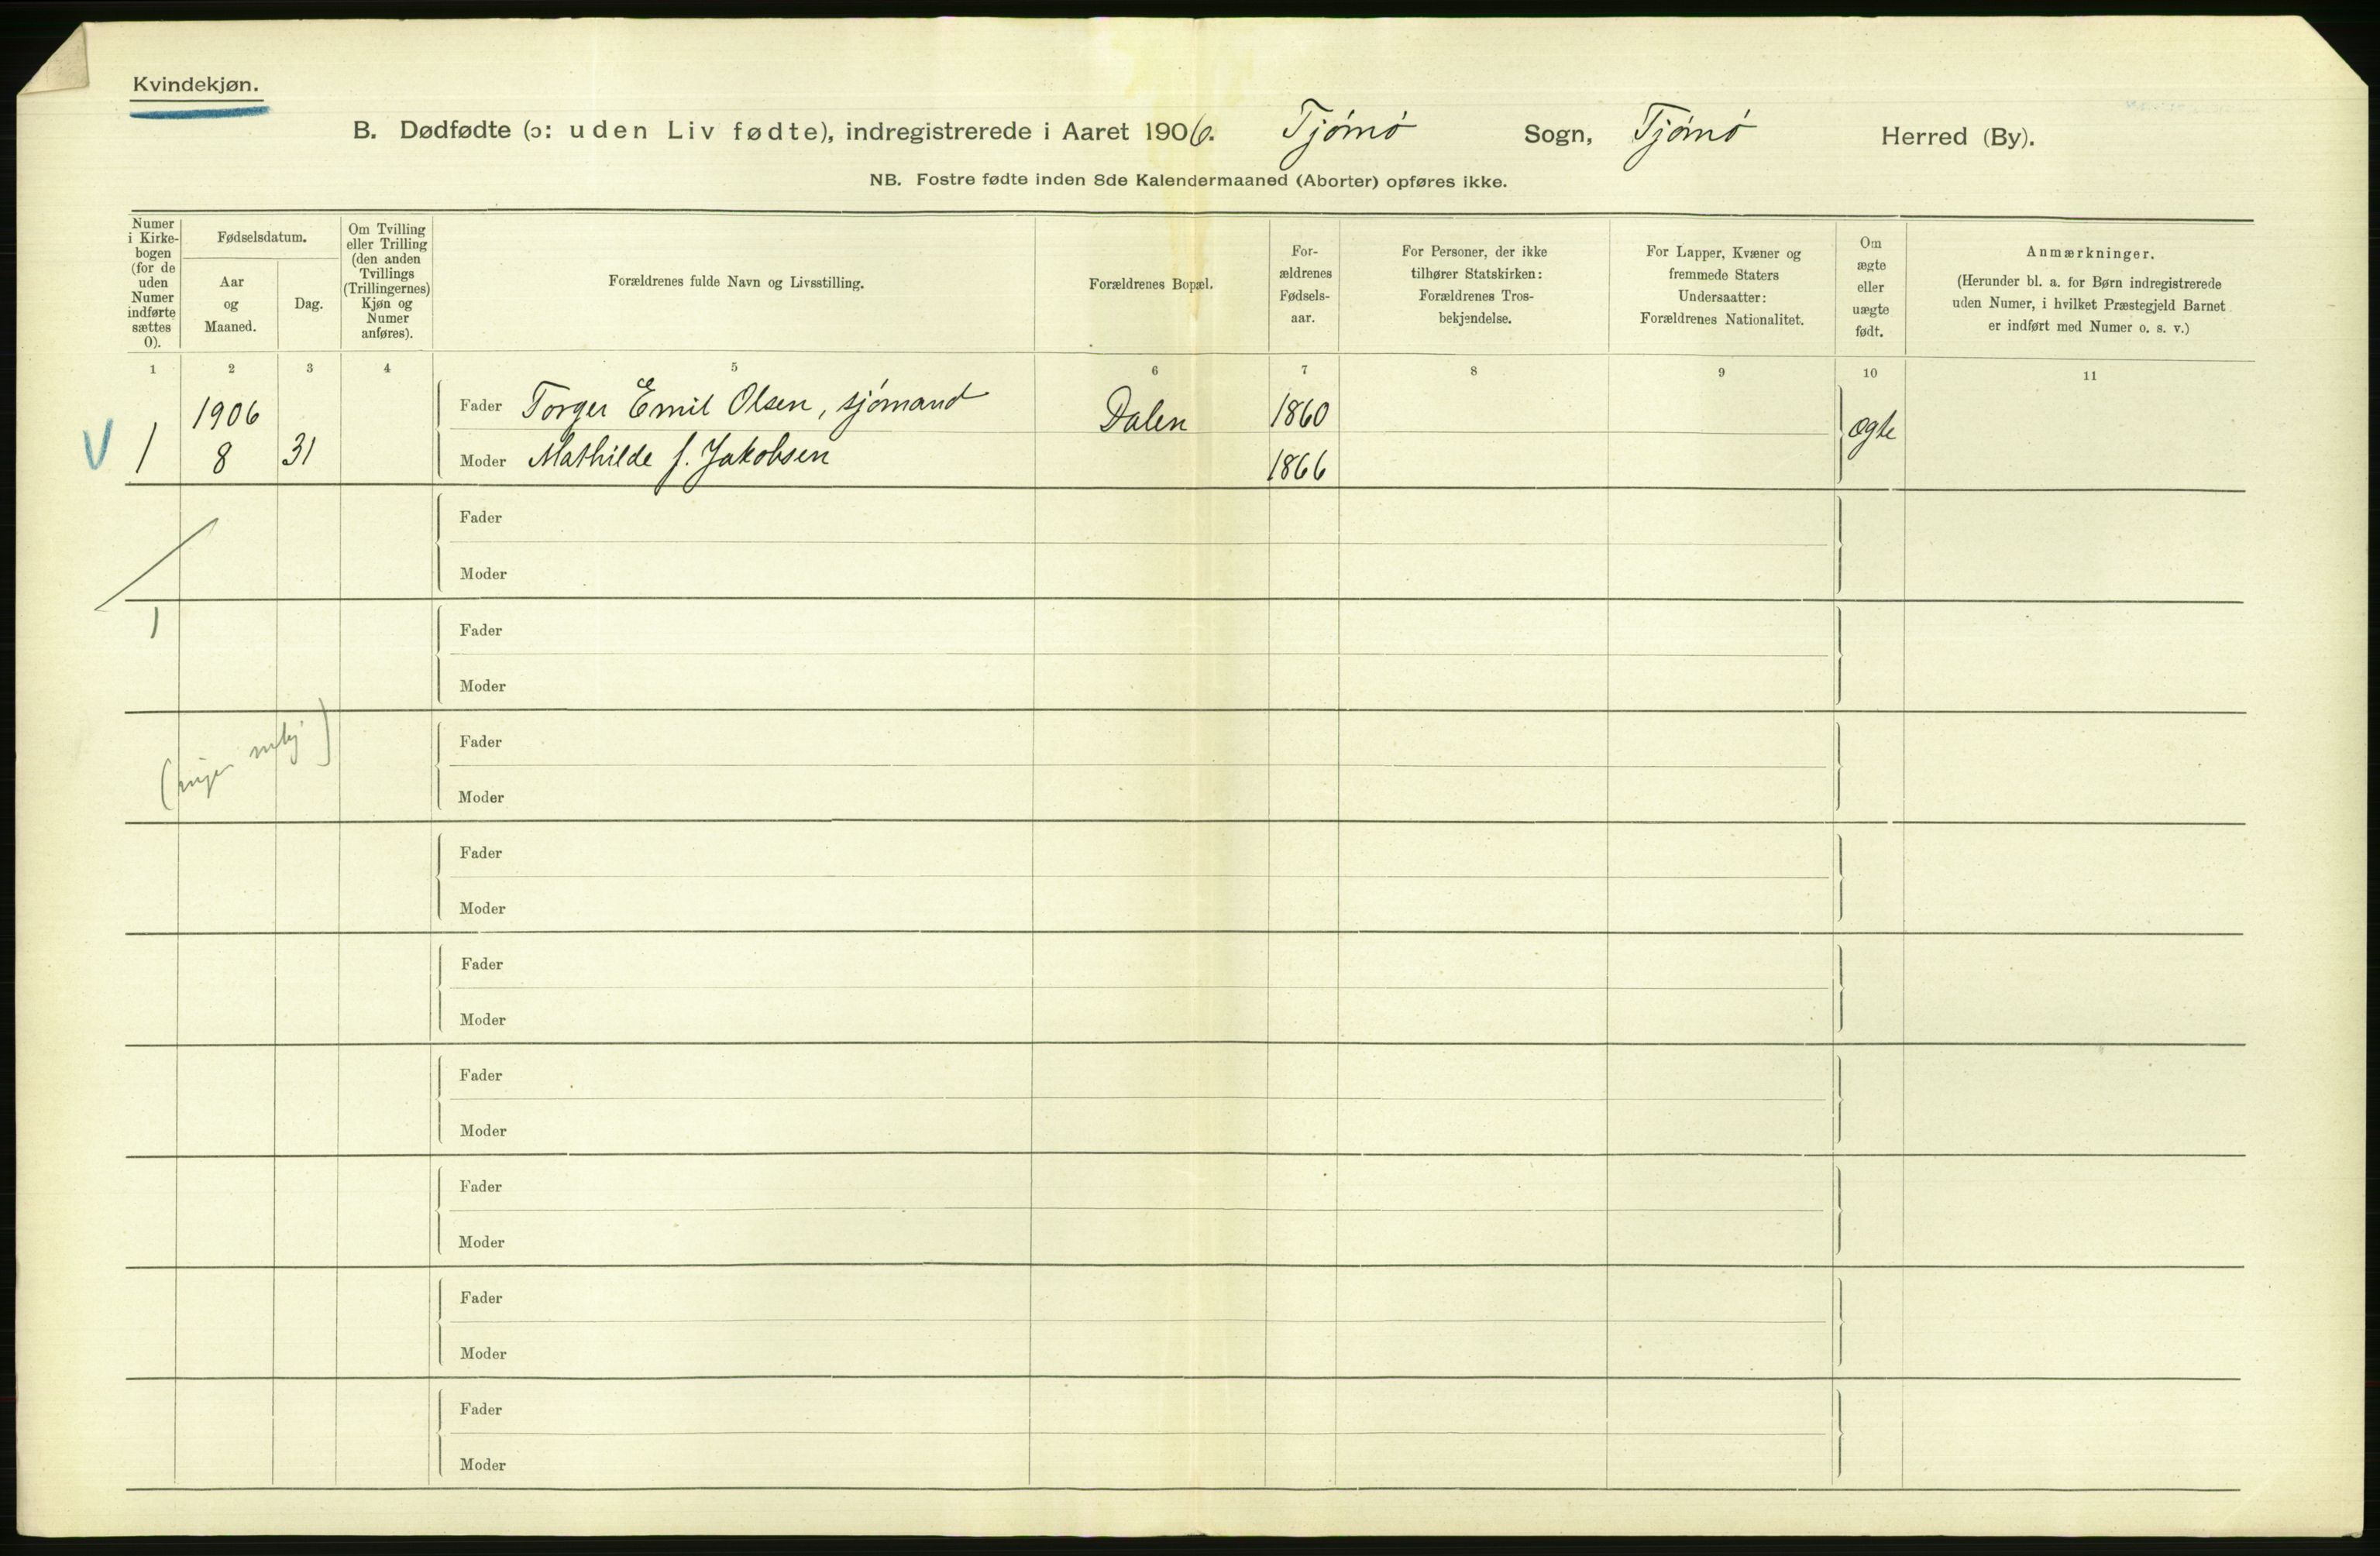 Kvindekjøn.
B. Dødfødte (ɔ: uden Liv fødte), indregistrerede i Aaret 1906. Tjømø Sogn, Tjømø Herred (By).
NB. Fostre fødte inden 8de Kalendermaaned (Aborter) opføres ikke.
Numer
i Kirke-
bogen
(for de
uden
Numer
indførte
sættes
0).
Fødselsdatum.
Aar
og
Maaned.
Dag.
Om Tvilling
eller Trilling
(den anden
Tvillings
(Trillingernes)
Kjøn og
Numer
anføres).
Forældrenes fulde Navn og Livsstilling.
Forældrenes Bopæl.
For-
ældrenes
Fødsels-
aar.
For Personer, der ikke
tilhører Statskirken:
Forældrenes Tros-
bekjendelse.
For Lapper, Kvæner og
fremmede Staters
Undersaatter:
Forældrenes Nationalitet.
Om
ægte
eller
uægte
født.
Anmærkninger.
(Herunder bl. a. for Børn indregistrerede
uden Numer, i hvilket Præstegjeld Barnet
er indført med Numer o. s. v.)
1 2 3 4 5 6 7 8 9 10 11
1906 Fader Torger Emil Olsen, sjømand Dalen 1860 ægte
V 1 8 31 Moder Mathilde f. Jakobsen 1866
Fader
Moder
1 Fader
Moder
Fader
Moder
Fader
Moder
Fader
Moder
Fader
Moder
Fader
Moder
Fader
Moder
Fader
Moder